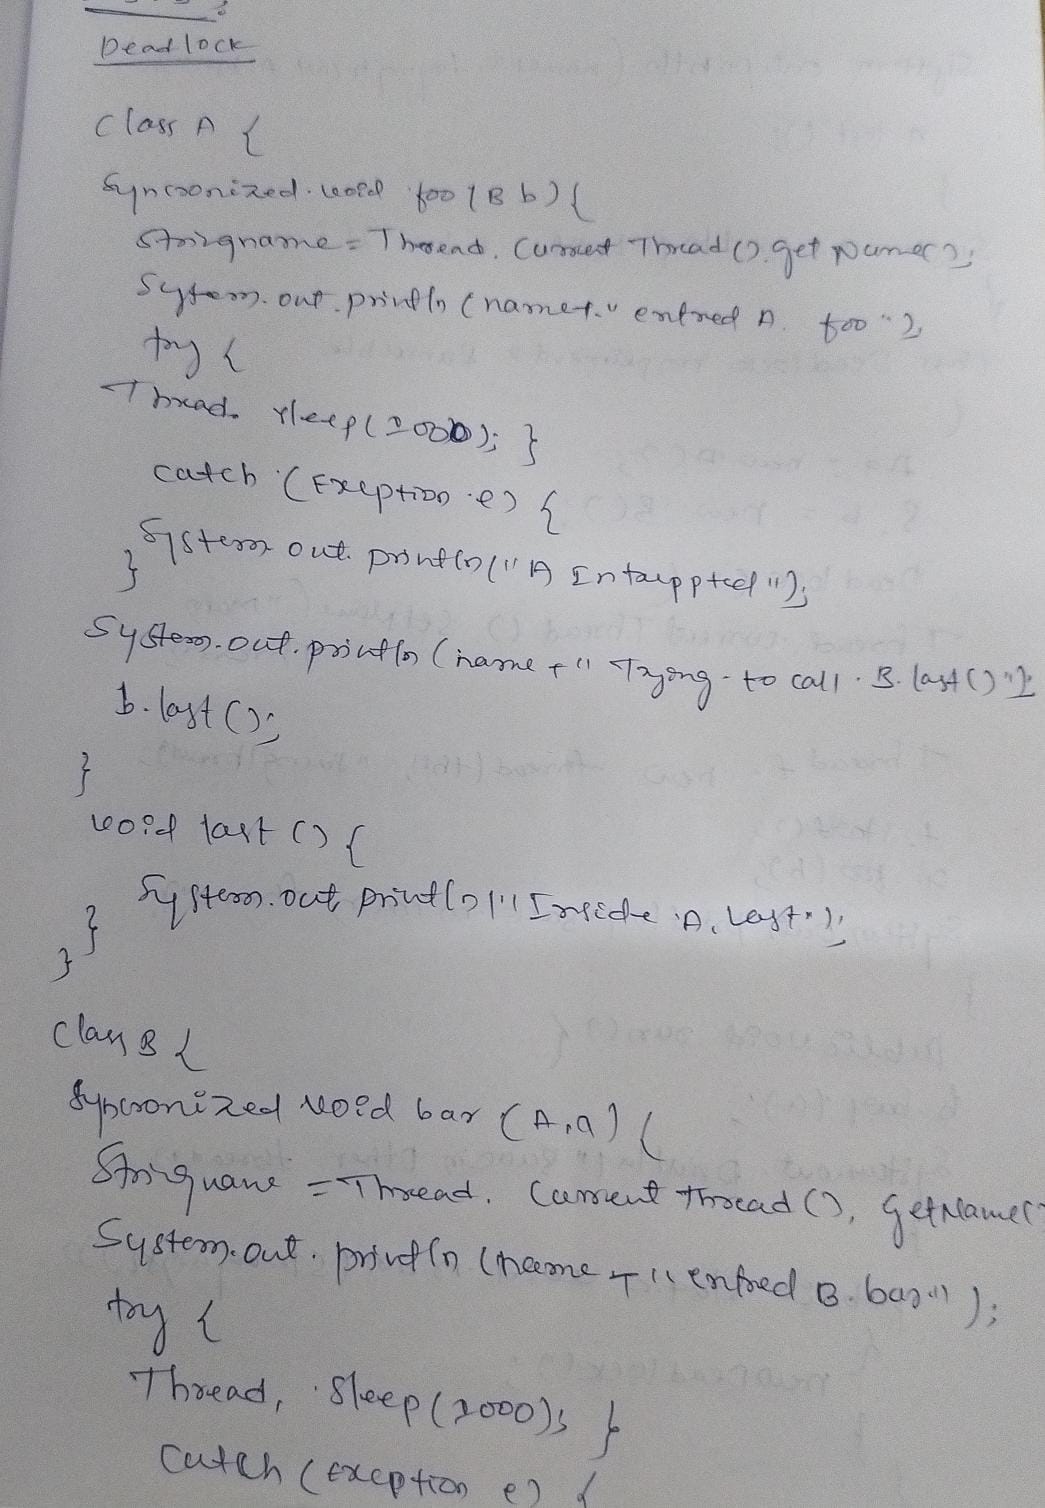 Deadlock
Class A {
Syncronized void foo (B b) {
String name = Thread. Current Thread (). get Name();
System. out. println (name+ " entred A. foo");
try {
Thread. sleep(1000); }
catch (Exception e) {
System out. println (" A Interppted ");
}
System. out. println (name +" Trying to call B. last()");
b. last ();
}
void last () {
System. out println (" Inside A. Last");
}
}
Class B {
Syncronized void bar (A, a) {
String name = Thread. Current thread (), GetName()
System. out. println (name + " entred B. bar");
try {
Thread, Sleep (1000); }
Catch (exception e) {